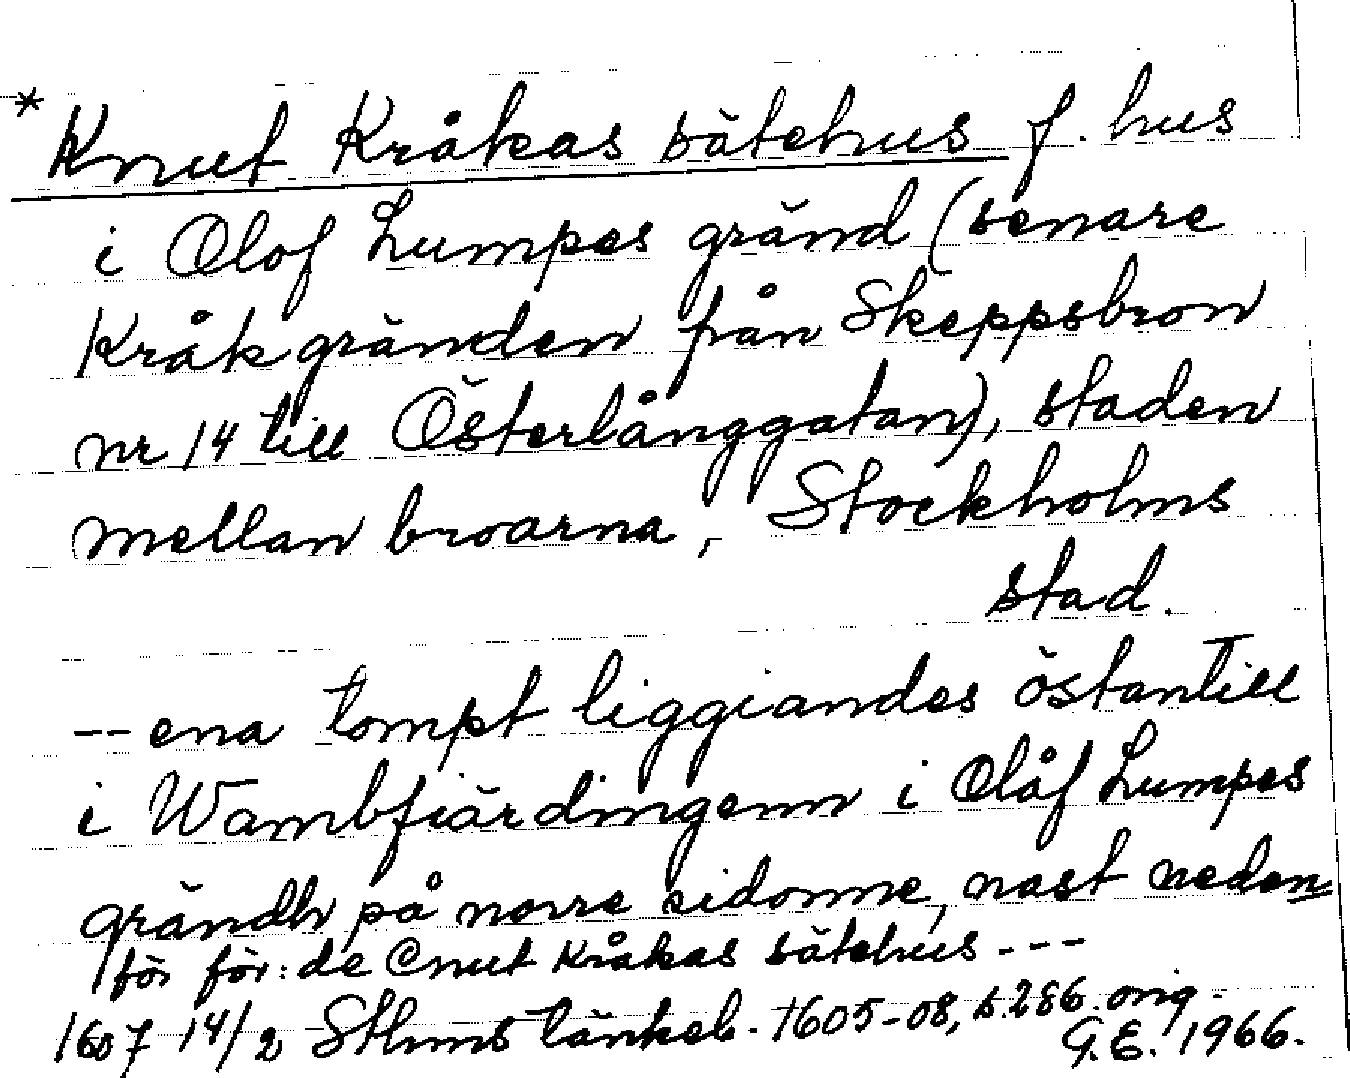 * Knut Kråkas sätehus f. hus
i Olof Lumpes gränd (senare
Kråkgränden från Skeppsbron
nr 14 till Österlånggatan), staden
mellan broarna, Stockholms
stad.
-- ena tompt liggiandes östantill
i Wambfiärdingenn i Olåf Lumpes
grändh på norre sidonne, nast neden
för för:de Cnut Kråkas sätehus ---
1607 14/2 Sthms tänkeb. 1605-08, s.286. orig.
G.E. 1966.